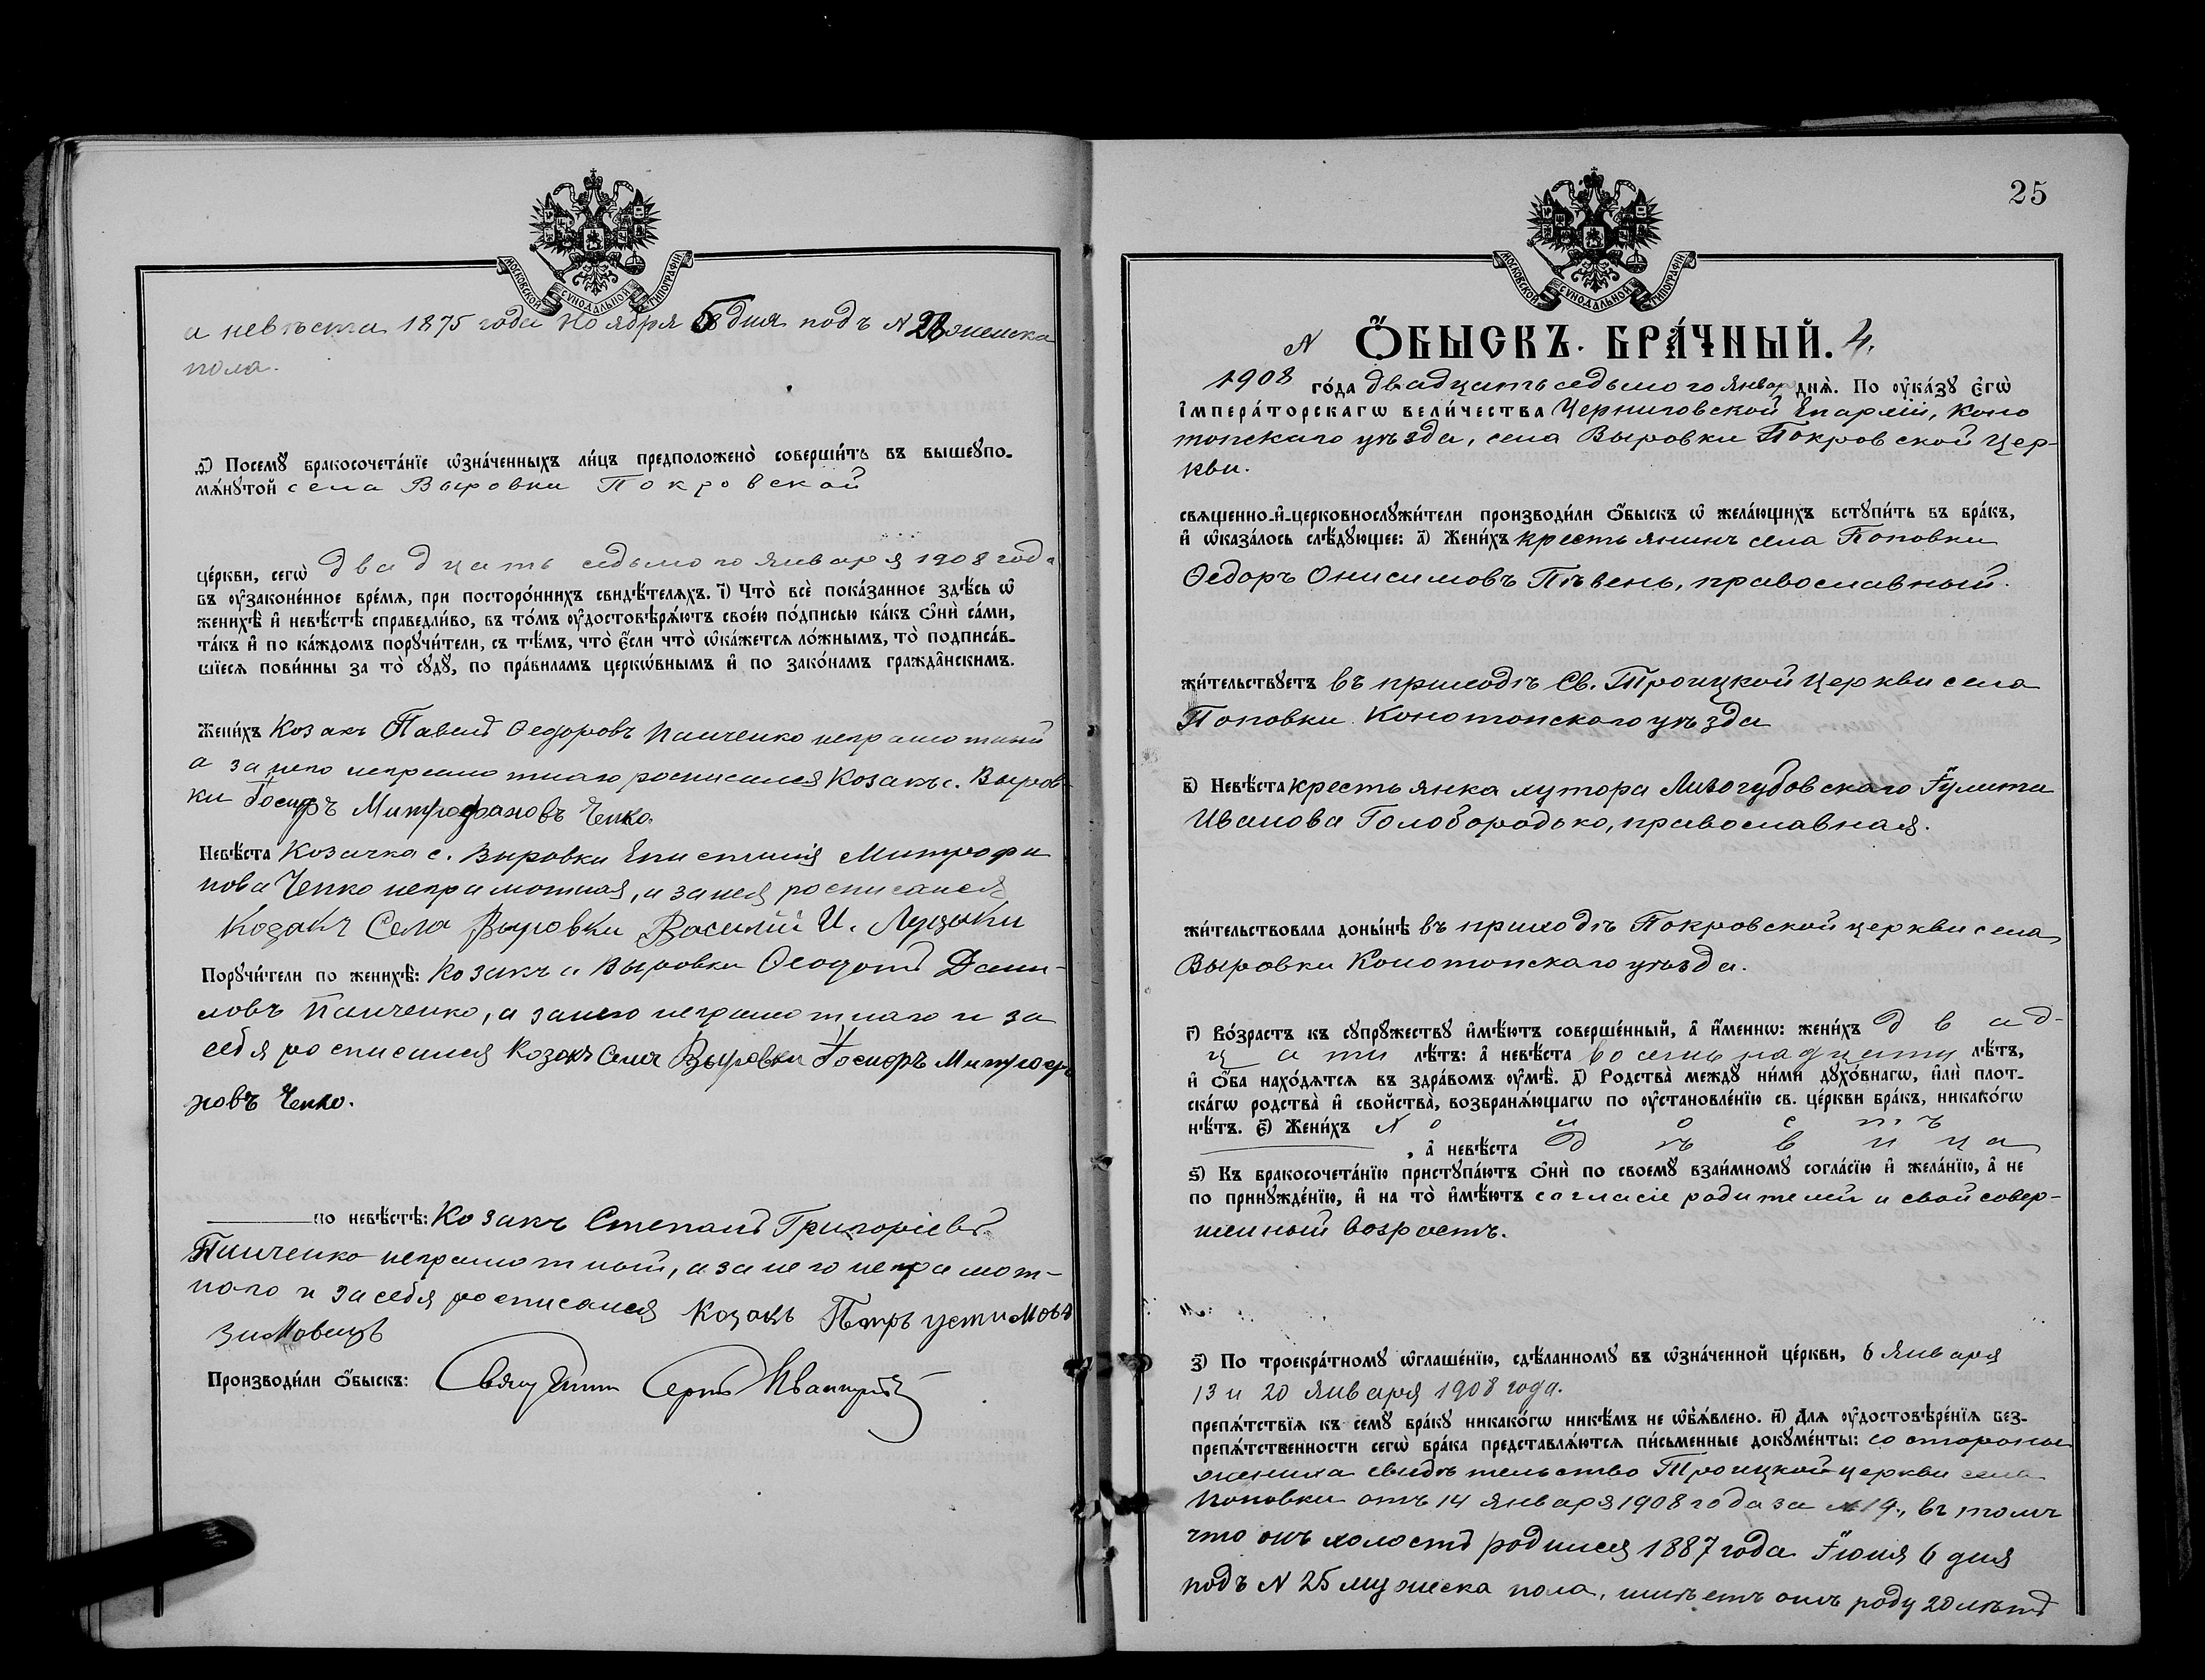 МОСКОВСКОЙ СѴНОДАЛЬНОЙ ТИПОГРАФІИ
а невѣста 1875 года ноября 5 дня подъ N 28 женска
пола.
Ѳ҃) Посемꙋ̀ бракосочета́нїе ѡ҆зна́ченныхъ ли́цъ предположено̀ соверши́ть въ вышеꙋпо-
мѧ́нꙋтой села Выровки Покровской
це́ркви, сегѡ̀ двадцать седьмого января 1908 года
въ ᲂу҆законе́нное вре́мѧ, при посторо́ннихъ свидѣ́телѧхъ. і҃) Что̀ всѐ пока́занное здѣ́сь ѡ҆
женихѣ̀ и҆ невѣ́стѣ справедли́во, въ то́мъ ᲂу҆достовѣрѧ́ютъ свое́ю по́дписью ка́къ ѻ҆нѝ са́ми,
та́къ и҆ по ка́ждомъ порꙋчи́тели, съ тѣ́мъ, что̀ є҆́сли что̀ ѡ҆ка́жетсѧ ло́жнымъ, то̀ подписа́в-
шїесѧ пови́нны за то̀ сꙋдꙋ̀, по пра́виламъ церкѡ́внымъ и҆ по зако́намъ гражда́нскимъ.
Жени́хъ Козакъ Павелъ Ѳедоровъ Панченко неграмотный
а за него неграмотнаго росписался Козакъ с. Выров-
ки Іосифъ Митрофановъ Чепко.
Невѣ́ста Козачка с. Выровки Епистимія Митрофа
нова Чепко неграмотная, а за нея росписался
Козакъ Села Выровки Василій И. Луцыки
Порꙋчи́тели по женихѣ̀: Козакъ с Выровки Ѳеодотъ Дани-
ловъ Панченко, а за него неграмотнаго и за
себя росписался Козакъ Села Выровки Іосифъ Митроф
новъ Чепко.
по невѣ́стѣ: Козакъ Степанъ Григоріевъ
Панченко неграмотный, а за него неграмот-
наго и за себя росписался Козакъ Петръ устимовъ
Зимовецъ
Производи́ли ѻ҆́быскъ: Свящ
25
МОСКОВСКОЙ СѴНОДАЛЬНОЙ ТИПОГРАФІИ
N Ѻ҆́БЫСКЪ БРА́ЧНЫЙ. 4.
1908 го́да двадцать седьмого январ днѧ̀. По ᲂу҆ка́зꙋ є҆гѡ̀
і҆мпера́торскагѡ вели́чества Черниговской Епархіи, Коно
топскаго уѣзда, села Выровки Покровской Цер-
кви.
свѧщенно-и҆-церковнослꙋжи́тели производи́ли ѻ҆́быскъ ѡ҆ жела́ющихъ встꙋпи́ть въ бра́къ,
и҆ ѡ҆каза́лось слѣ́дꙋющее: а҃) Жени́хъ крестьянинъ села Поповки
Ѳедоръ Онисимовъ Пѣвень, православный.
жи́тельствꙋетъ въ приходѣ Св. Троицкой Церкви села
Поповки Конотопскаго уѣзда
в҃) Невѣ́ста крестьянка хутора Лизогубовскаго Іулита
Иванова Голобородько, православная.
жи́тельствовала доны́нѣ въ приходѣ Покровской церкви села
Выровки Конотопскаго уѣзда.
г҃) Во́зрастъ къ сꙋпрꙋ́жествꙋ и҆мѣ́ютъ соверше́нный, а҆ и҆́меннѡ: жени́хъ двад-
цати лѣ́тъ: а҆ невѣ́ста восемьнадцати лѣ́тъ,
и҆ ѻ҆́ба нахо́дѧтсѧ въ здра́вомъ ᲂу҆мѣ̀. д҃) Родства̀ междꙋ ни́ми дꙋхо́внагѡ, и҆лѝ плот-
ска́гѡ родства̀ и҆ свойства̀, возбранѧ́ющагѡ по ᲂу҆становле́нїю св. це́ркви бра́къ, никако́гѡ
нѣ́тъ. є҃) Жени́хъ холостъ
, а҆ невѣ́ста дѣвица
ѕ҃) Къ бракосочета́нїю пристꙋпа́ютъ ѻ҆нѝ по своемꙋ̀ взаи́мномꙋ согла́сїю и҆ жела́нїю, а҆ не
по принꙋжде́нїю, и҆ на то̀ и҆мѣ́ютъ согласіе родителей и свой совер-
шенный возростъ.
з҃) По троекра́тномꙋ ѡ҆глаше́нїю, сдѣ́ланномꙋ въ ѡ҆зна́ченной це́ркви, 6 января
13 и 20 января 1908 года.
препѧ́тствїѧ къ семꙋ̀ бра́кꙋ никако́гѡ никѣ́мъ не ѡ҆бъѧ́влено. и҃) Длѧ ᲂу҆достовѣре́нїѧ без-
препѧ́тственности сегѡ̀ бра́ка представлѧ́ютсѧ пи́сьменные докꙋме́нты: со стороны
жениха свидѣтельство Троицкой церкви села
Поповки отъ 14 января 1908 года за № 19, въ томъ
что онъ холостъ родился 1887 года Іюня 6 дня
подъ N 25 мужеска пола, имѣетъ отъ роду 20 лѣтъ